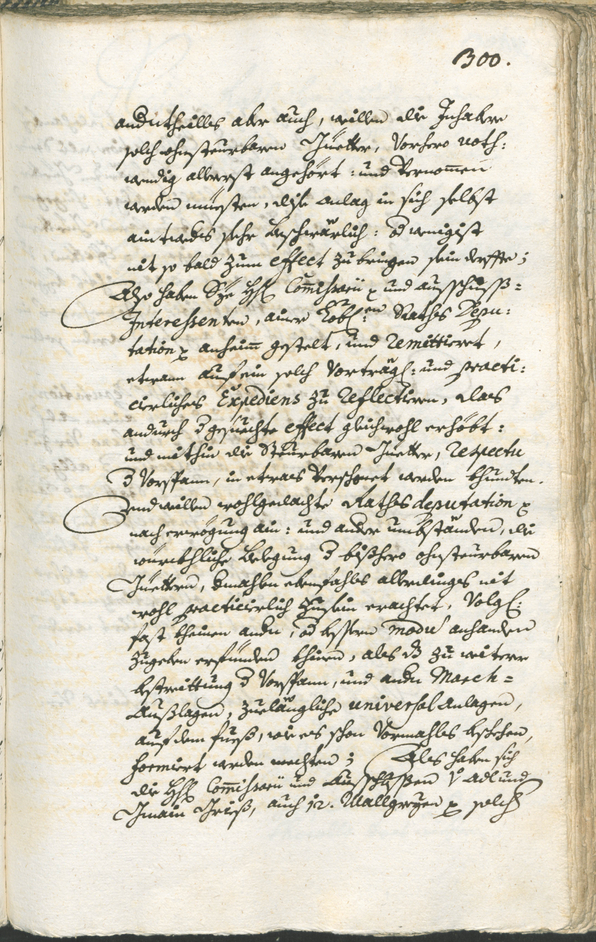 300.
andertheills aber auch, weillen die Inhabere
solch ohnsteurbaren Güetter, vorhero noth:
wendig allererst angehört: und vernommen
werden müesten, dise anlag in sich selbst
aintweders sehr beschwärlich: od wenigist
nit so bald zum effect zubringen sein derffte;
Also haben Sye Hh: Commissarii x und ausschuss=
Interessenten, ainer Löbl:en Raths Depu:
tation x anheimb gestelt, und remittieret,
etwann auf ein solch vorträgl: und practi:
cierliches Expediens zu reflectieren, alss
andurch d gesuechte effect gleichwohl erhöbt:
und mithin die Steurbaren Güetter, respectu
d Vorspann, in etwas verschonet werden khundten.
Und weillen wohlgedachte Rathsdeputation x
nach erwögung ain: und ander umbständen, die
würckhliche belegung d bisshero ohnsteurbaren
Güettern, damahln ebenfahls allerdings nit
wohl practicierlich zusein erachtet, volgl:
fast kheinen andn, od bessern modu anhanden
zugeben erfunden khönen, als dz zu weiterer
bestreittung d Vorspann, und andn March=
Ausslagen, zuelängliche universal Anlagen,
auf dem fuess, wie es schon vormahls beschehen,
formiert werden mechten; Also haben sich
die Hh: Commissarii und Ausschussen v Adl und
Gmain Griss, auch in Wallgeyen x solch